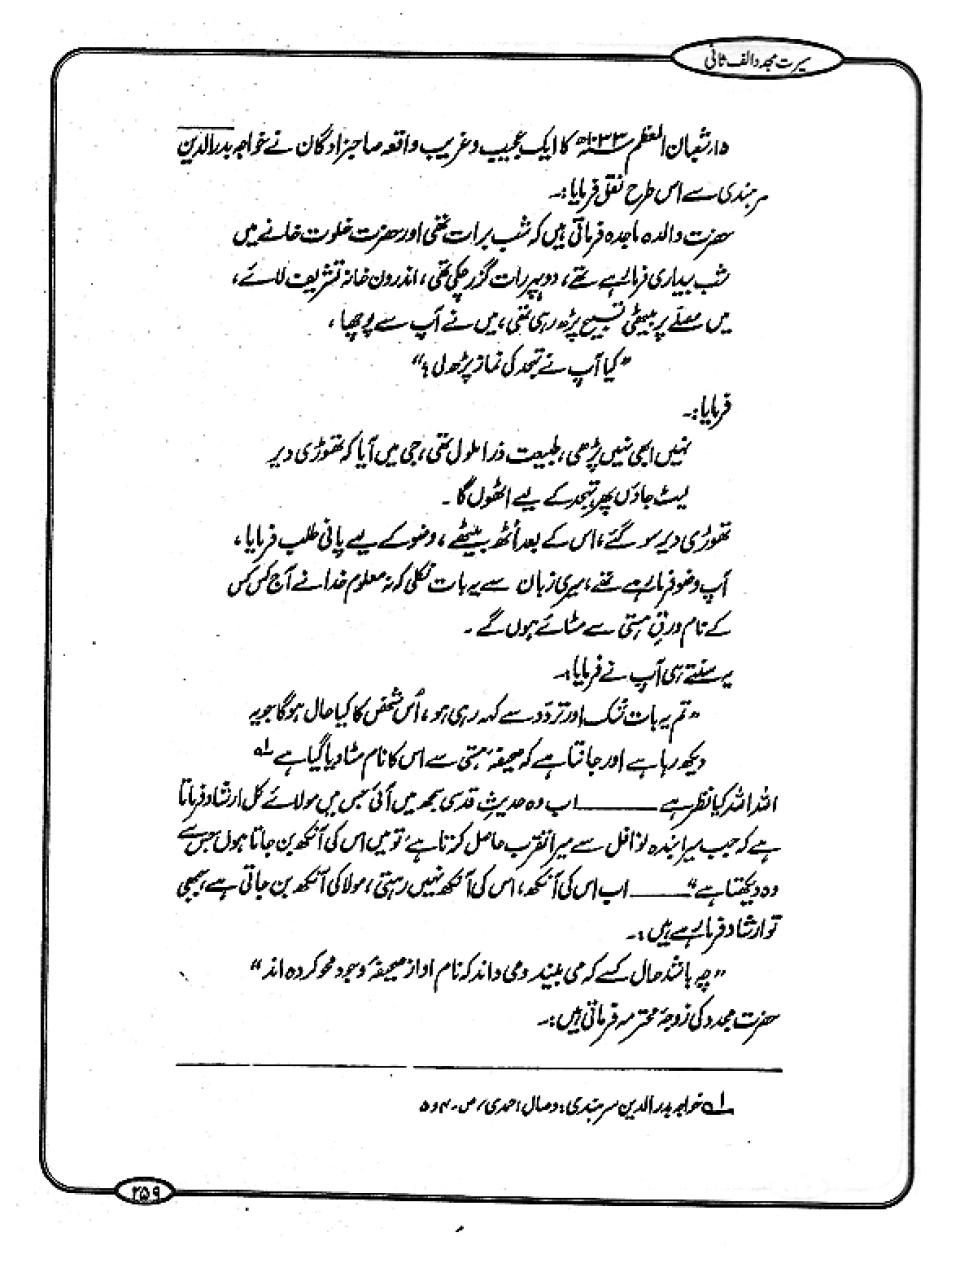 سیرت مجدد الف ثانی
۱۵ر شعبان المعظم ۱۰۳۳ھ کا ایک عجیب و غریب واقعہ صاحبزادگان نے خواجہ بدرالدین
سرہندی سے اس طرح نقل فرمایا:۔
حضرت والدہ ماجدہ فرماتی ہیں کہ شب برات تھی اور حضرت خلوت خانے میں
شب بیداری فرما رہے تھے، دوپہر رات گزر چکی تھی، اندرون خانہ تشریف لائے،
میں مصلّے پر بیٹھی تسبیح پڑھ رہی تھی، میں نے آپ سے پوچھا،
”کیا آپ نے تہجد کی نماز پڑھ لی؟“
فرمایا:۔
نہیں ابھی نہیں پڑھی، طبیعت ذرا ملول تھی، جی میں آیا کہ تھوڑی دیر
لیٹ جاؤں پھر تہجد کے لیے اٹھوں گا۔
تھوڑی دیر سو گئے، اس کے بعد اُٹھ بیٹھے، وضو کے لیے پانی طلب فرمایا،
آپ وضو فرما رہے تھے، میری زبان سے یہ بات نکلی کہ نہ معلوم خدا نے آج کس کس
کے نام ورقِ ہستی سے مٹائے ہوں گے۔
یہ سنتے ہی آپ نے فرمایا:۔
”تم یہ بات شک اور تردّد سے کہہ رہی ہو، اُس شخص کا کیا حال ہوگا جو یہ
دیکھ رہا ہے اور جانتا ہے کہ صحیفۂ ہستی سے اس کا نام مٹا دیا گیا ہے لہ
اللہ اللہ کیا نظر ہے ــــــــ اب وہ حدیثِ قدسی سمجھ میں آئی جس میں مولائے کل ارشاد فرماتا
ہے کہ جب میرا بندہ نوافل سے میرا تقرب حاصل کرتا ہے تو میں اس کی آنکھ بن جاتا ہوں جس سے
وہ دیکھتا ہے“ ــــــــ اب اس کی آنکھ، اس کی آنکھ نہیں رہتی، مولا کی آنکھ بن جاتی ہے، جبھی
تو ارشاد فرما رہے ہیں:۔
”چہ باشد حال کسے کہ می بیند و می داند کہ نام او از صحیفۂ وجود محو کردہ اند“
حضرت مجدد کی زوجۂ محترمہ فرماتی ہیں:۔
لہ خواجہ بدرالدین سرہندی: وصال احمدی، ص۔ ۴ و ۵
۲۵۹